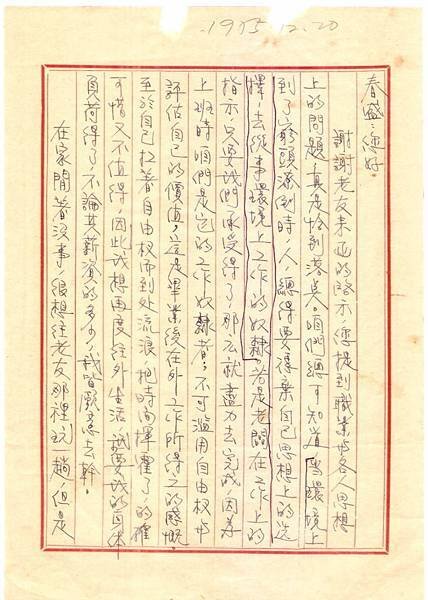 1975.12.20
春盛：您好。
謝謝老友来函的啓示，您提到職業与各人思想
上的問題，真是恰到落点。咱們總可知道，當環境上
到了窮頭潦倒時，人，總得要揚棄自己思想上的选
擇，去從事環境上工作的奴隸。若是老闆在工作上的
指示，只要我們承受得了，那么就盡力去完成，因为
上班時咱們是它的工作奴隸者，不可濫用自由权与
評估自己的價值，這是畢業後在外工作所得之的感慨。
至於自己扛着自由权而到处流浪，把時间揮霍了，的確
可惜又不值得，因此我想再度往外生活，試
負荷得了，不論其薪資的多少，我皆願意去幹。
在家閒着没事，很想往老友那裡玩一趟，但是